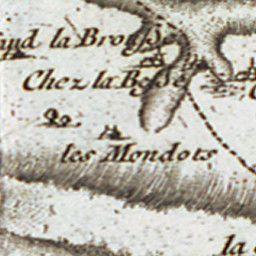 la Brousse
Chez la Besse
les Mondots
la